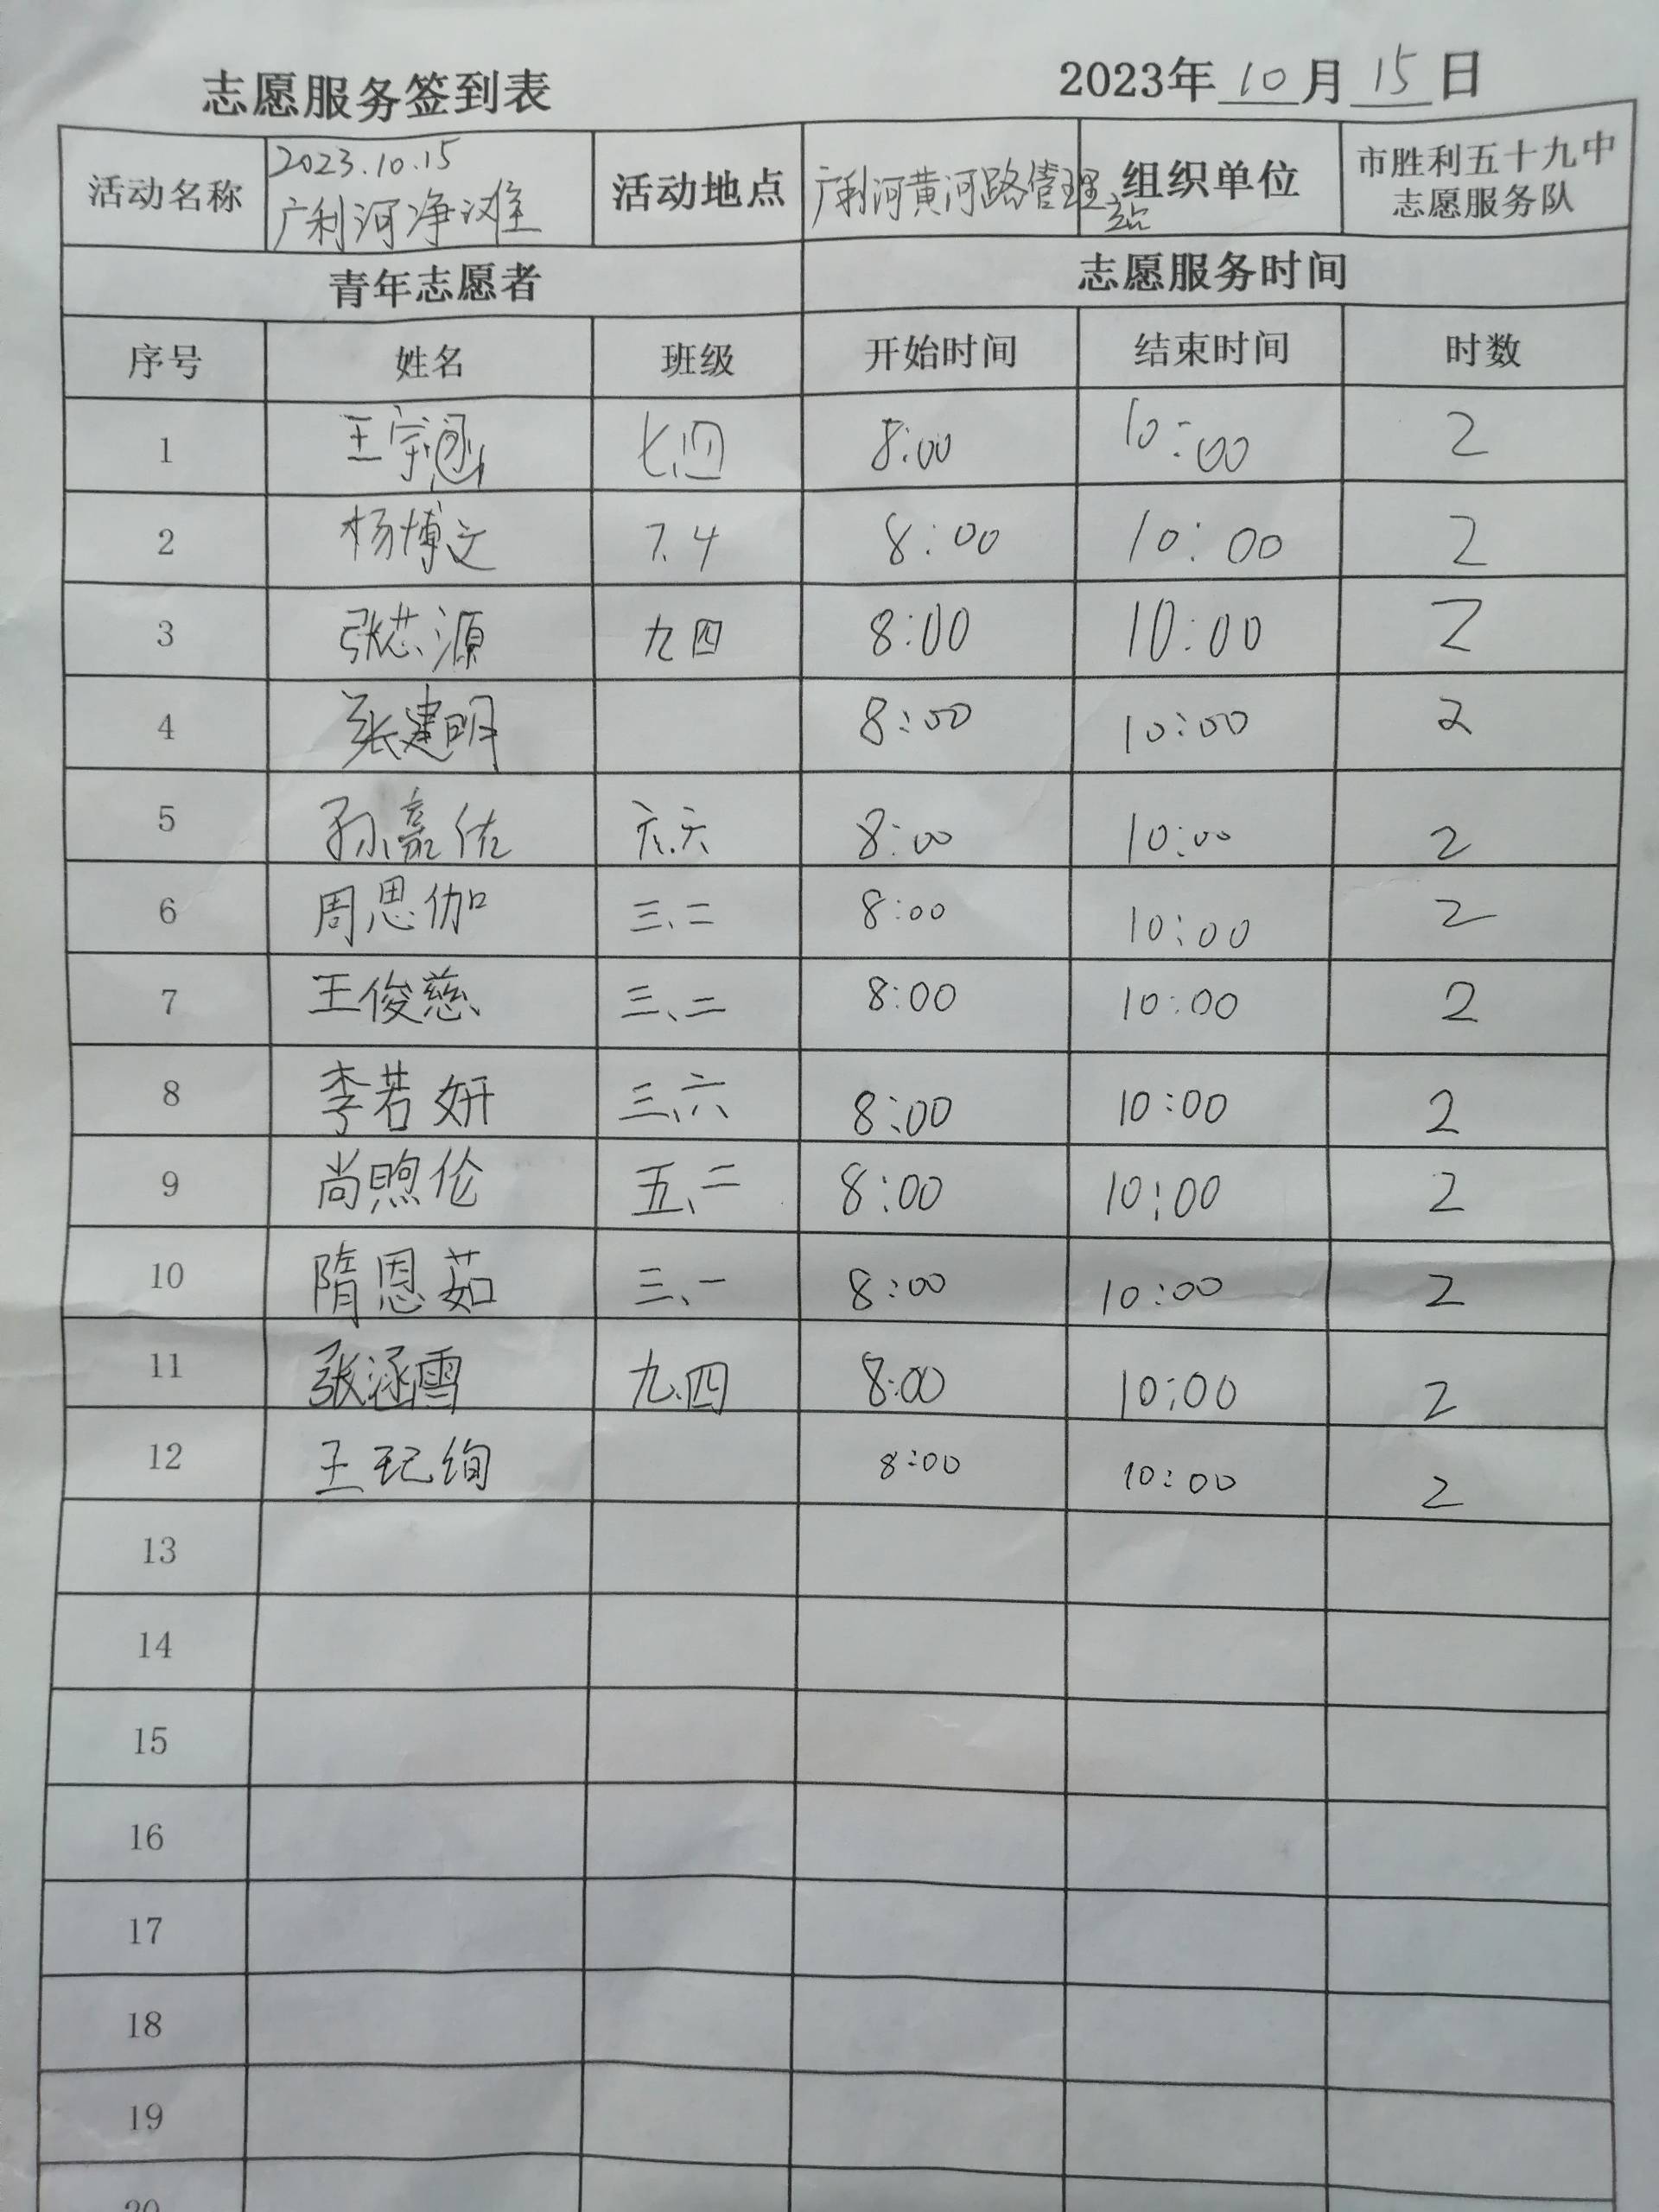 志愿服务签到表 2023年10月15日
活动名称 2023.10.15 广利河净滩 活动地点 广利河黄河路管理站 组织单位 市胜利五十九中志愿服务队
青年志愿者 志愿服务时间
序号 姓名 班级 开始时间 结束时间 时数
1 王宗涵 七.四 8:00 10:00 2
2 杨博文 7.4 8:00 10:00 2
3 张芯源 九四 8:00 10:00 2
4 张建明 8:00 10:00 2
5 孙嘉佑 六.六 8:00 10:00 2
6 周思伽 三、二 8:00 10:00 2
7 王俊慈 三、二 8:00 10:00 2
8 李若妍 三、六 8:00 10:00 2
9 尚煦伦 五、二 8:00 10:00 2
10 隋恩茹 三、一 8:00 10:00 2
11 张涵雪 九.四 8:00 10:00 2
12 王玘绚 8:00 10:00 2
13
14
15
16
17
18
19
20